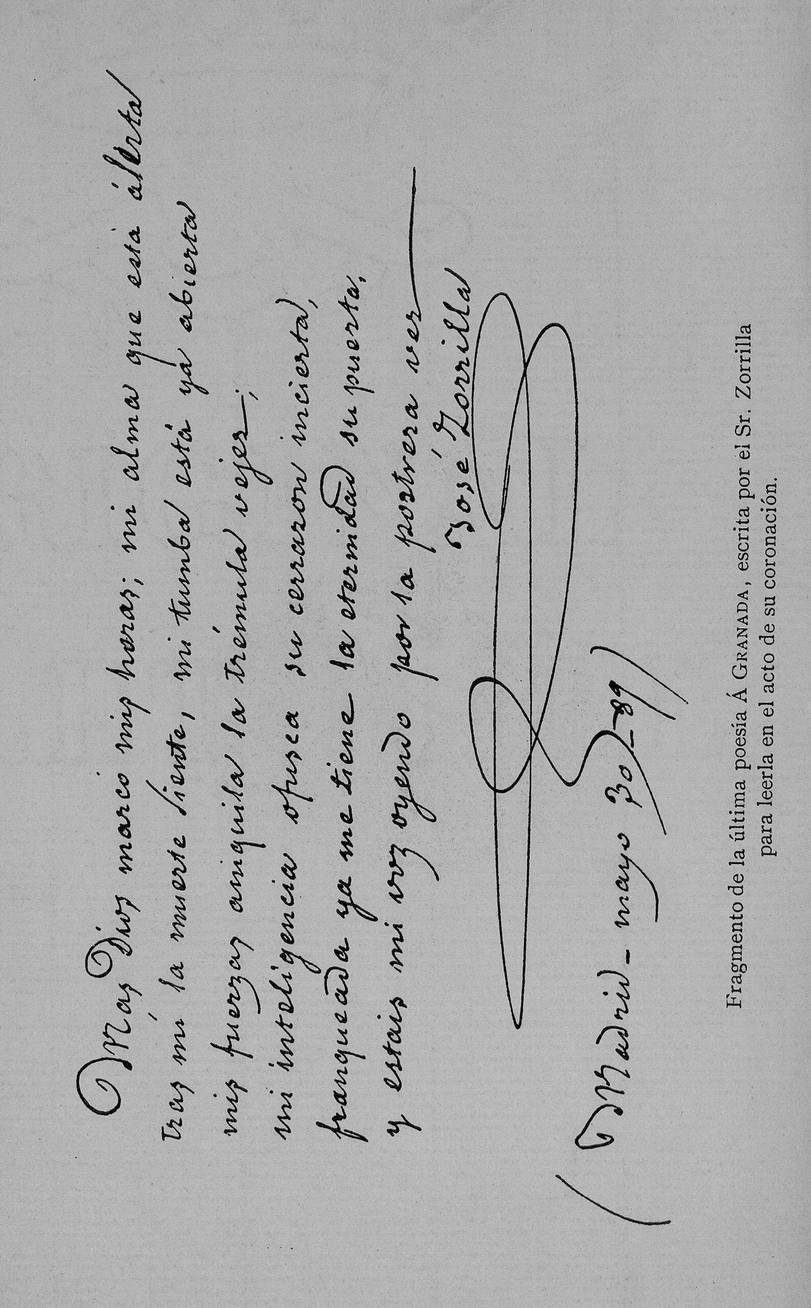 Más Dios marcó mis horas; mi alma que está álerta
tras mí la muerte siente, mi tumba está yá abierta
mis fuerzas aniquila la trémula vejez;
mi inteligencia ofusca su cerrazon incierta,
franqueada ya me tiene la eternidad su puerta,
y estais mi voz oyendo por la postrera vez
José Zorrilla
(Madrid – mayo 30 – 89)
Fragmento de la última poesía Á GRANADA, escrita por el Sr. Zorrilla
para leerla en el acto de su coronación.